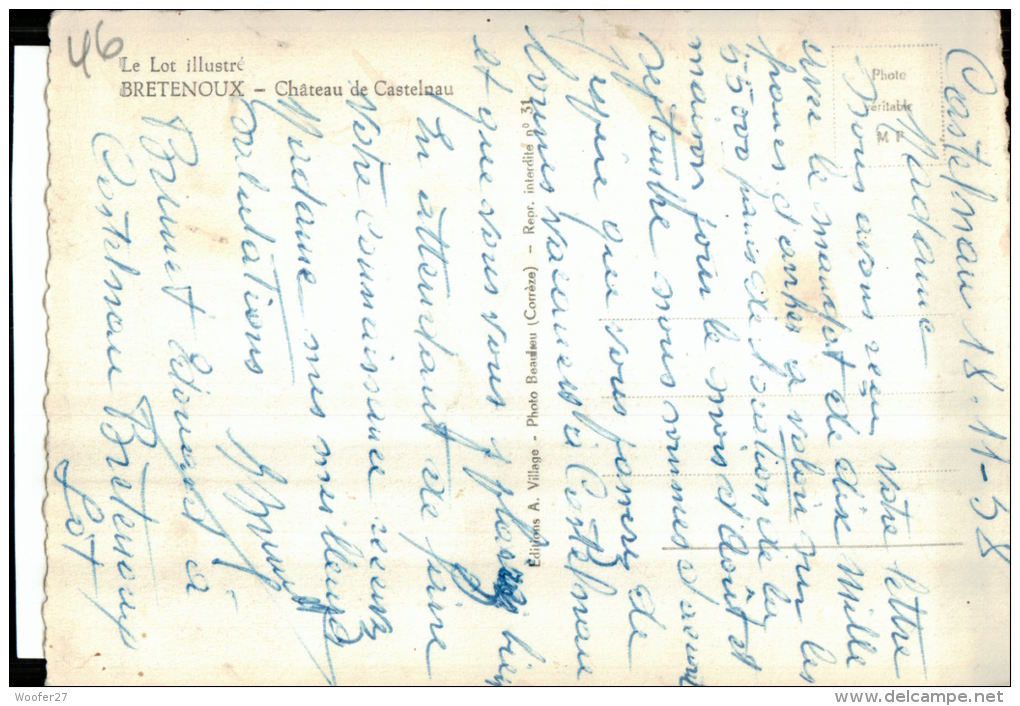 46
Le Lot illustré
BRETENOUX – Château de Castelnau
Photo
véritable
M F
Editions A. Village - Photo Beaulieu (Corrèze) – Repr. interdite nº 31
Castelnau 18-11-58
Madame
Nous avons reçu votre lettre
avec le mandat de dix mille
francs d'arrhes à valoir sur les
55000 francs de location de la
maison pour le mois d'août et
septembre nous sommes d'accord
J'espère que vous passerez de
bonnes vacances à Castelnau
et que vous vous y plairez bien
En attendant de faire
votre connaissance recevez
Madame mes meilleures
Salutations
Brunet
Brunet Edouard à
Castelnau Bretenoux
Lot
Woofer27
www.delcampe.net